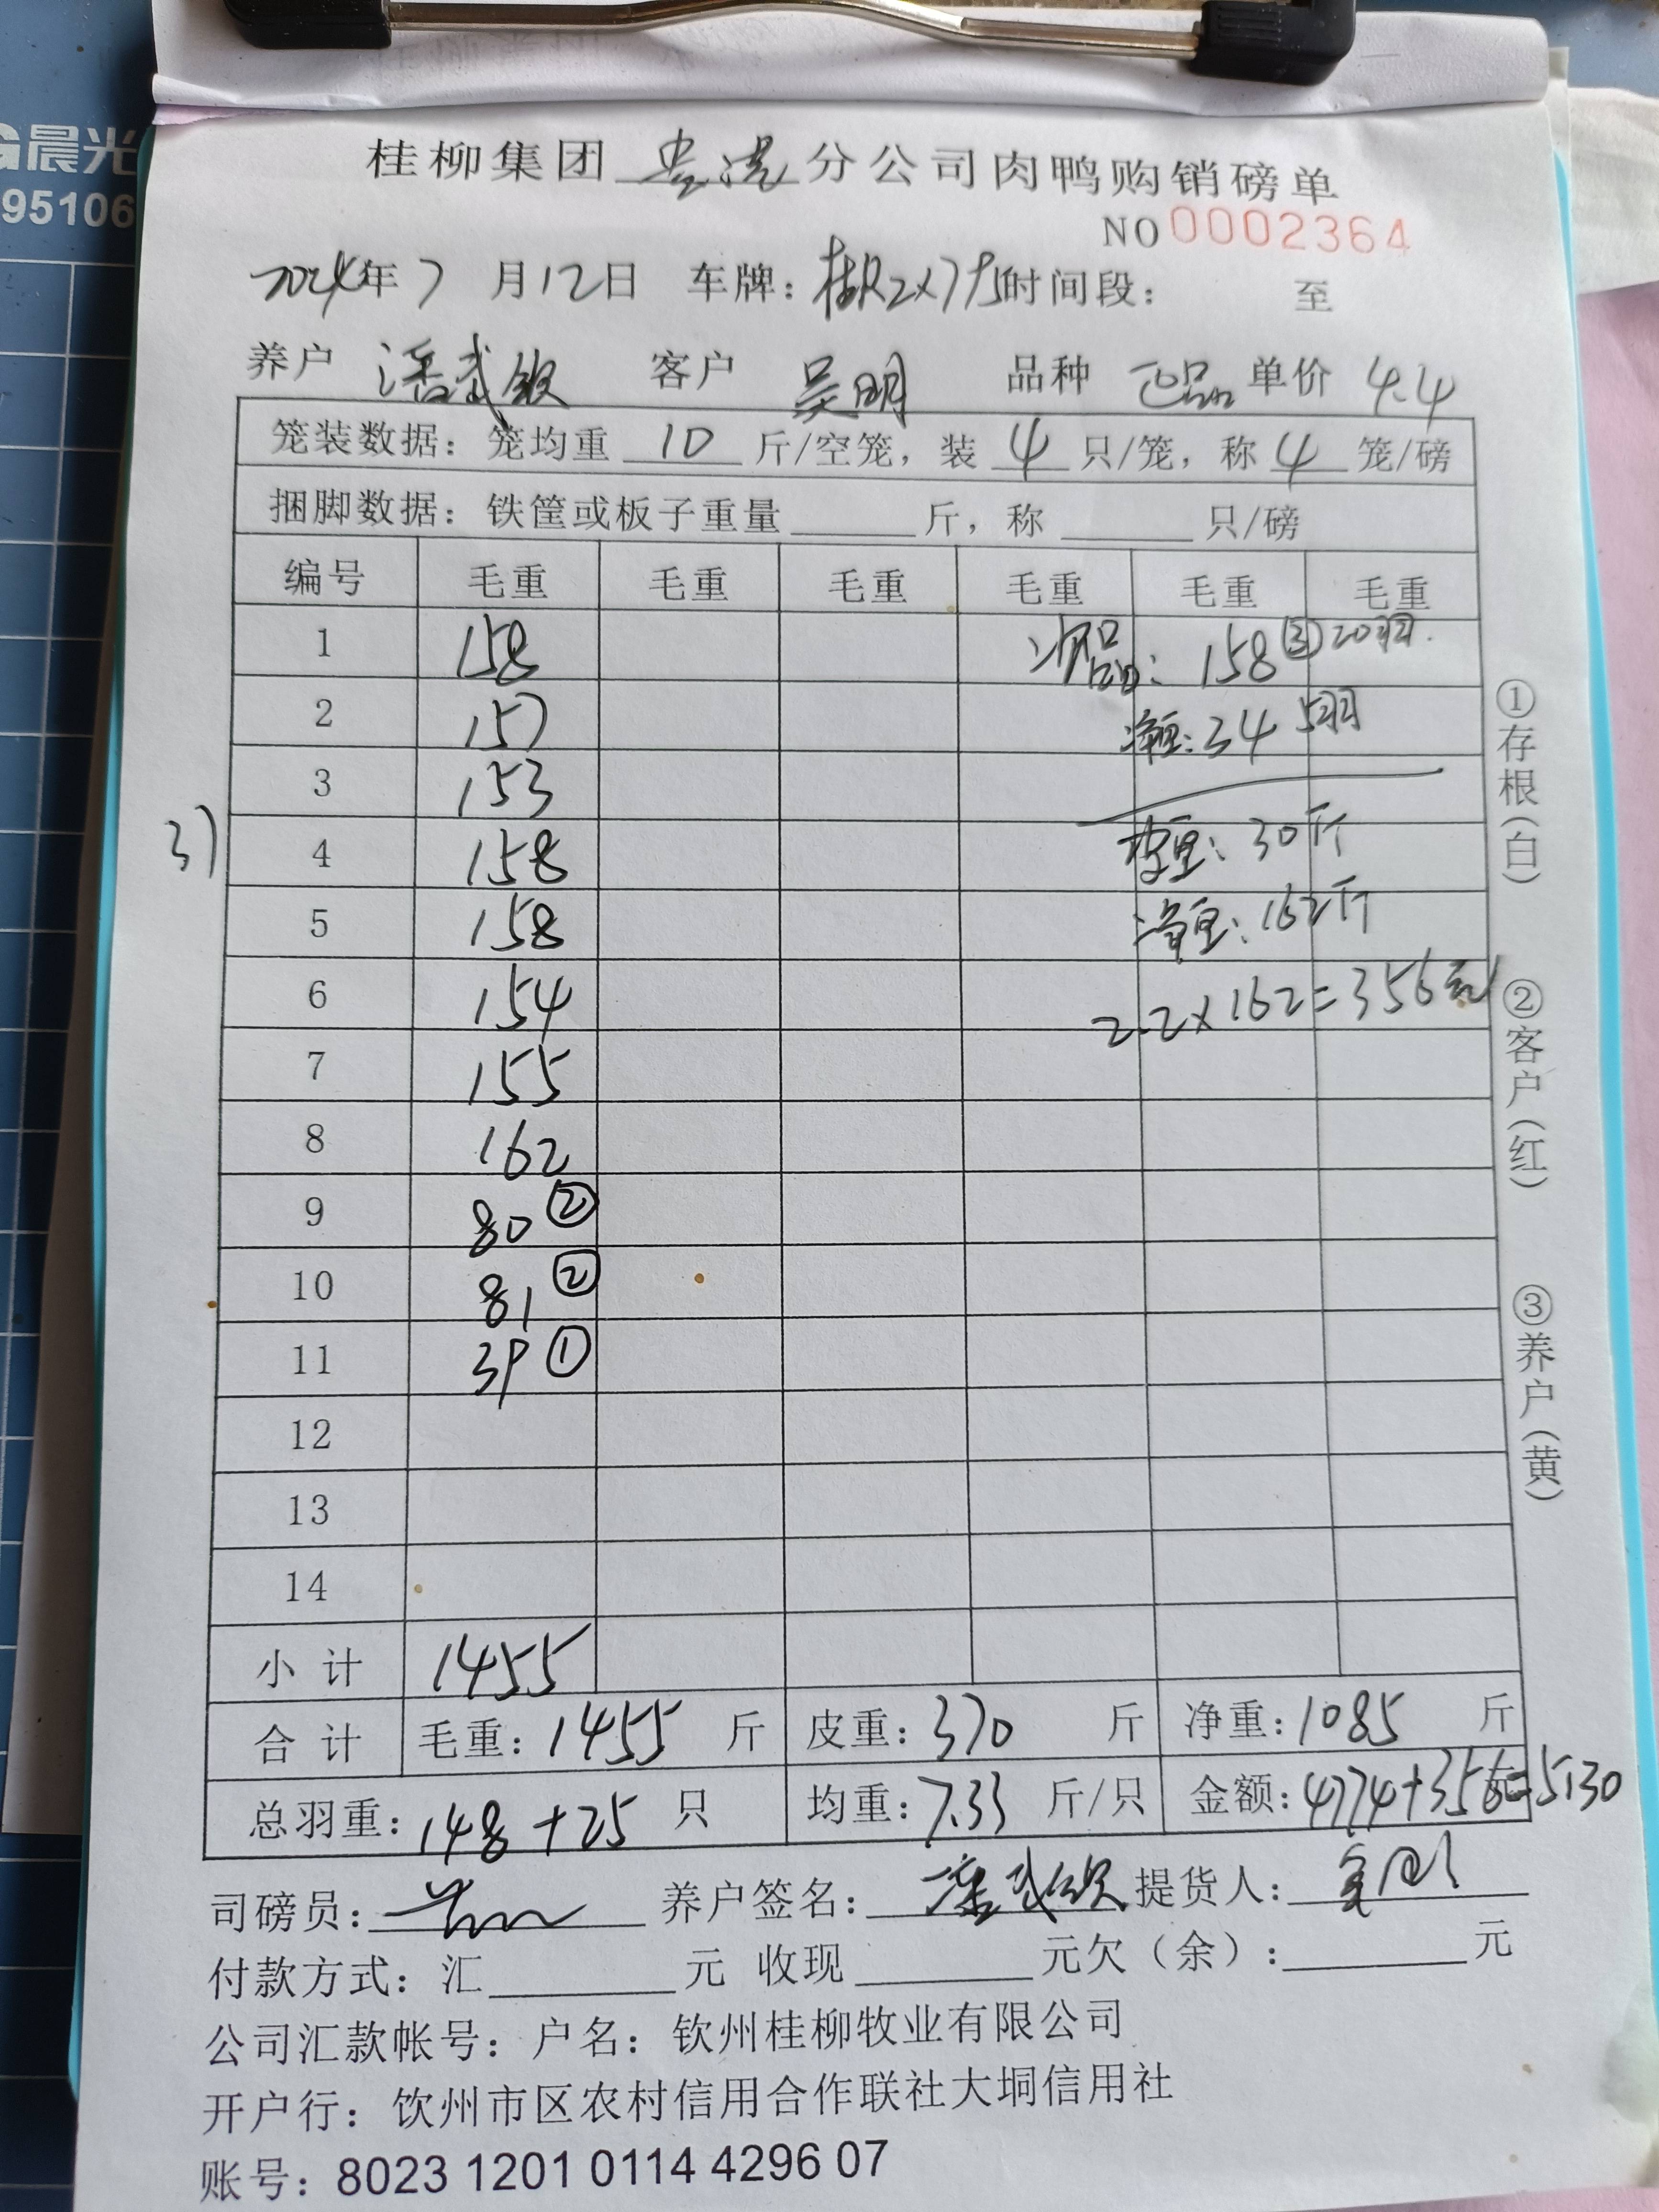 晨光
95106
桂柳集团 贵港 分公司肉鸭购销磅单
NO 0002364
2024年7月12日 车牌: 时间段: 至
养户 潘武钦 客户 吴明 品种 正品 单价 4.4
笼装数据: 笼均重 10 斤/空笼, 装 4 只/笼, 称 4 笼/磅
捆脚数据: 铁筐或板子重量 斤, 称 只/磅
编号 毛重 毛重 毛重 毛重 毛重 毛重
1 158 次品: 158 ③ 20羽.
2 157 净重: 34 5羽
3 153
37
4 158 皮重: 30斤
5 158 净重: 162斤
6 154 2.2×162=356元
7 155
8 162
9 80 ②
10 81 ②
11 39 ①
12
13
14
小计 1455
合计 毛重: 1455 斤 皮重: 370 斤 净重: 1085 斤
总羽重: 148+25 只 均重: 7.33 斤/只 金额: 4774+356=5130 元
司磅员: 养户签名: 潘武钦 提货人: 吴明
付款方式: 汇 元 收现 元欠(余): 元
公司汇款帐号: 户名: 钦州桂柳牧业有限公司
开户行: 钦州市区农村信用合作联社大垌信用社
账号: 8023 1201 0114 4296 07
①存根(白)
②客户(红)
③养户(黄)